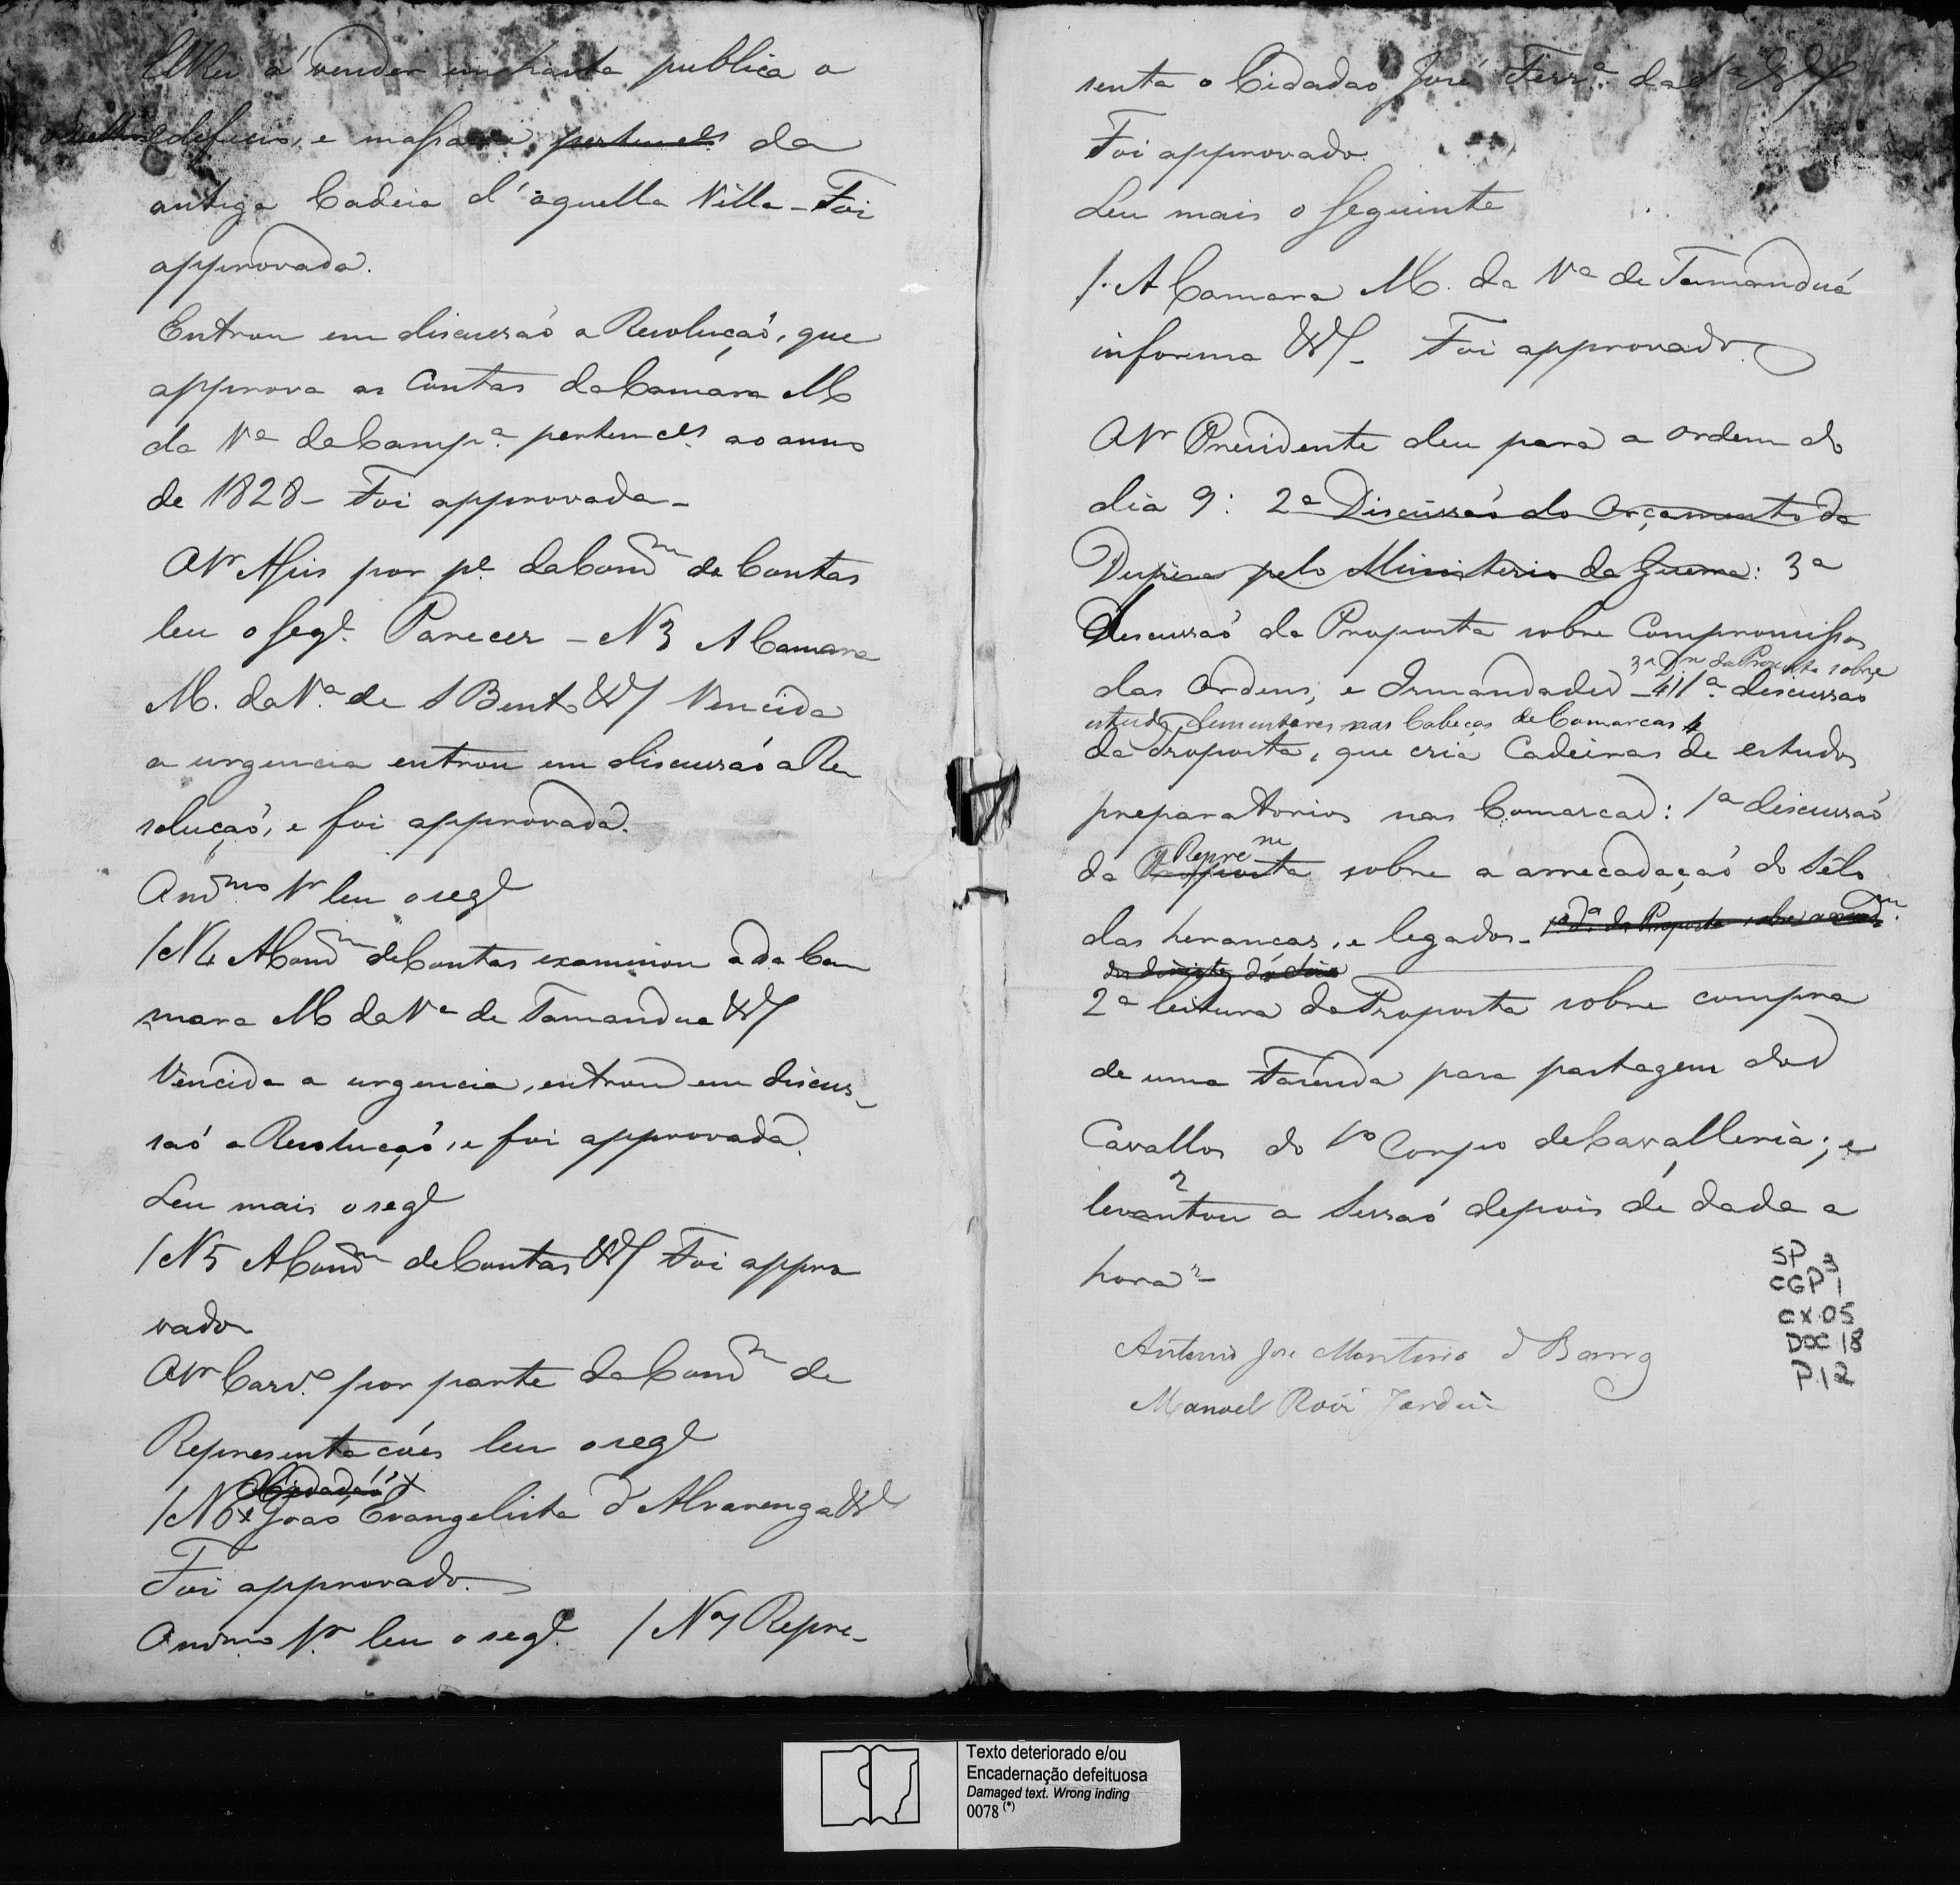 ElRei á vender em hasta publica o
edeficio, e massame pertencles da
antiga Cadeia d'aquella Villa - Foi
approvada.
Entrou em discussaõ a Resoluçaõ, que
approva as Contas da Camara M
da Vª da Campª pertencles ao anno
de 1828 - Foi approvada -
O Sr Assis por pe da Comm de Contas
leu o segte Parecer - N 3 A Camara
M. da Vª de S Bento &/ Vencida
a urgencia entrou em discussaõ a Re
soluçaõ, e foi approvada.
O mmo Sr leu o segte
/ N 4 A Comm de Contas examinou a da Ca
mara M da Vª de Tamandua &/
Vencida a urgencia, entrou em discus-
saõ a Resoluçaõ, e foi approvada.
Leu mais o segte
/ N 5 A Comm de Contas &/ Foi appro
vado
O Sr Carvº por parte da Comm de
Representacões leu o segte
Cidadaõ
/ N 6 x Joao Evangelista d'Alvarenga &
Foi approvado.
O mmo Sr leu o segte / N 7 Repre-
senta o Cidadaõ José Ferrª da Sª &/
Foi approvado.
Leu mais o seguinte
/. A Camara M. da Vª de Tamanduá
informa &/ - Foi approvado.
O Sr Presidente deu para a ordem do
dia 9: 2ª Discussaõ do Orçamento da
Despesa pelo Ministerio da Guerra: 3ª
Discussaõ da Proposta sobre Compromissos
das Ordens, e Irmandades - 1ª discussaõ
3ª Dm da Proposta sobre
estudos elementares nas Cabeças de Comarcas
da Proposta, que cria Cadeiras de estudos
preparatorios nas Comarcas: 1ª discussaõ
Repre m
da Proposta sobre a arrecadaçaõ do Sêlo
das heranças, e legados - 1ª da Proposta sobre
2ª leitura da Proposta sobre compra
de uma Fazenda para pastagem dos
Cavallos do 1º Corpo de Cavalleria; e
levantou a Sessaõ depois de dada a
hora -
Antonio Jose Monteiro d Barros
Manoel Roiz Jardim
SP 3
CGP 1
CX.05
DOC 18
P.12
Texto deteriorado e/ou
Encadernação defeituosa
Damaged text. Wrong inding
0078 (*)